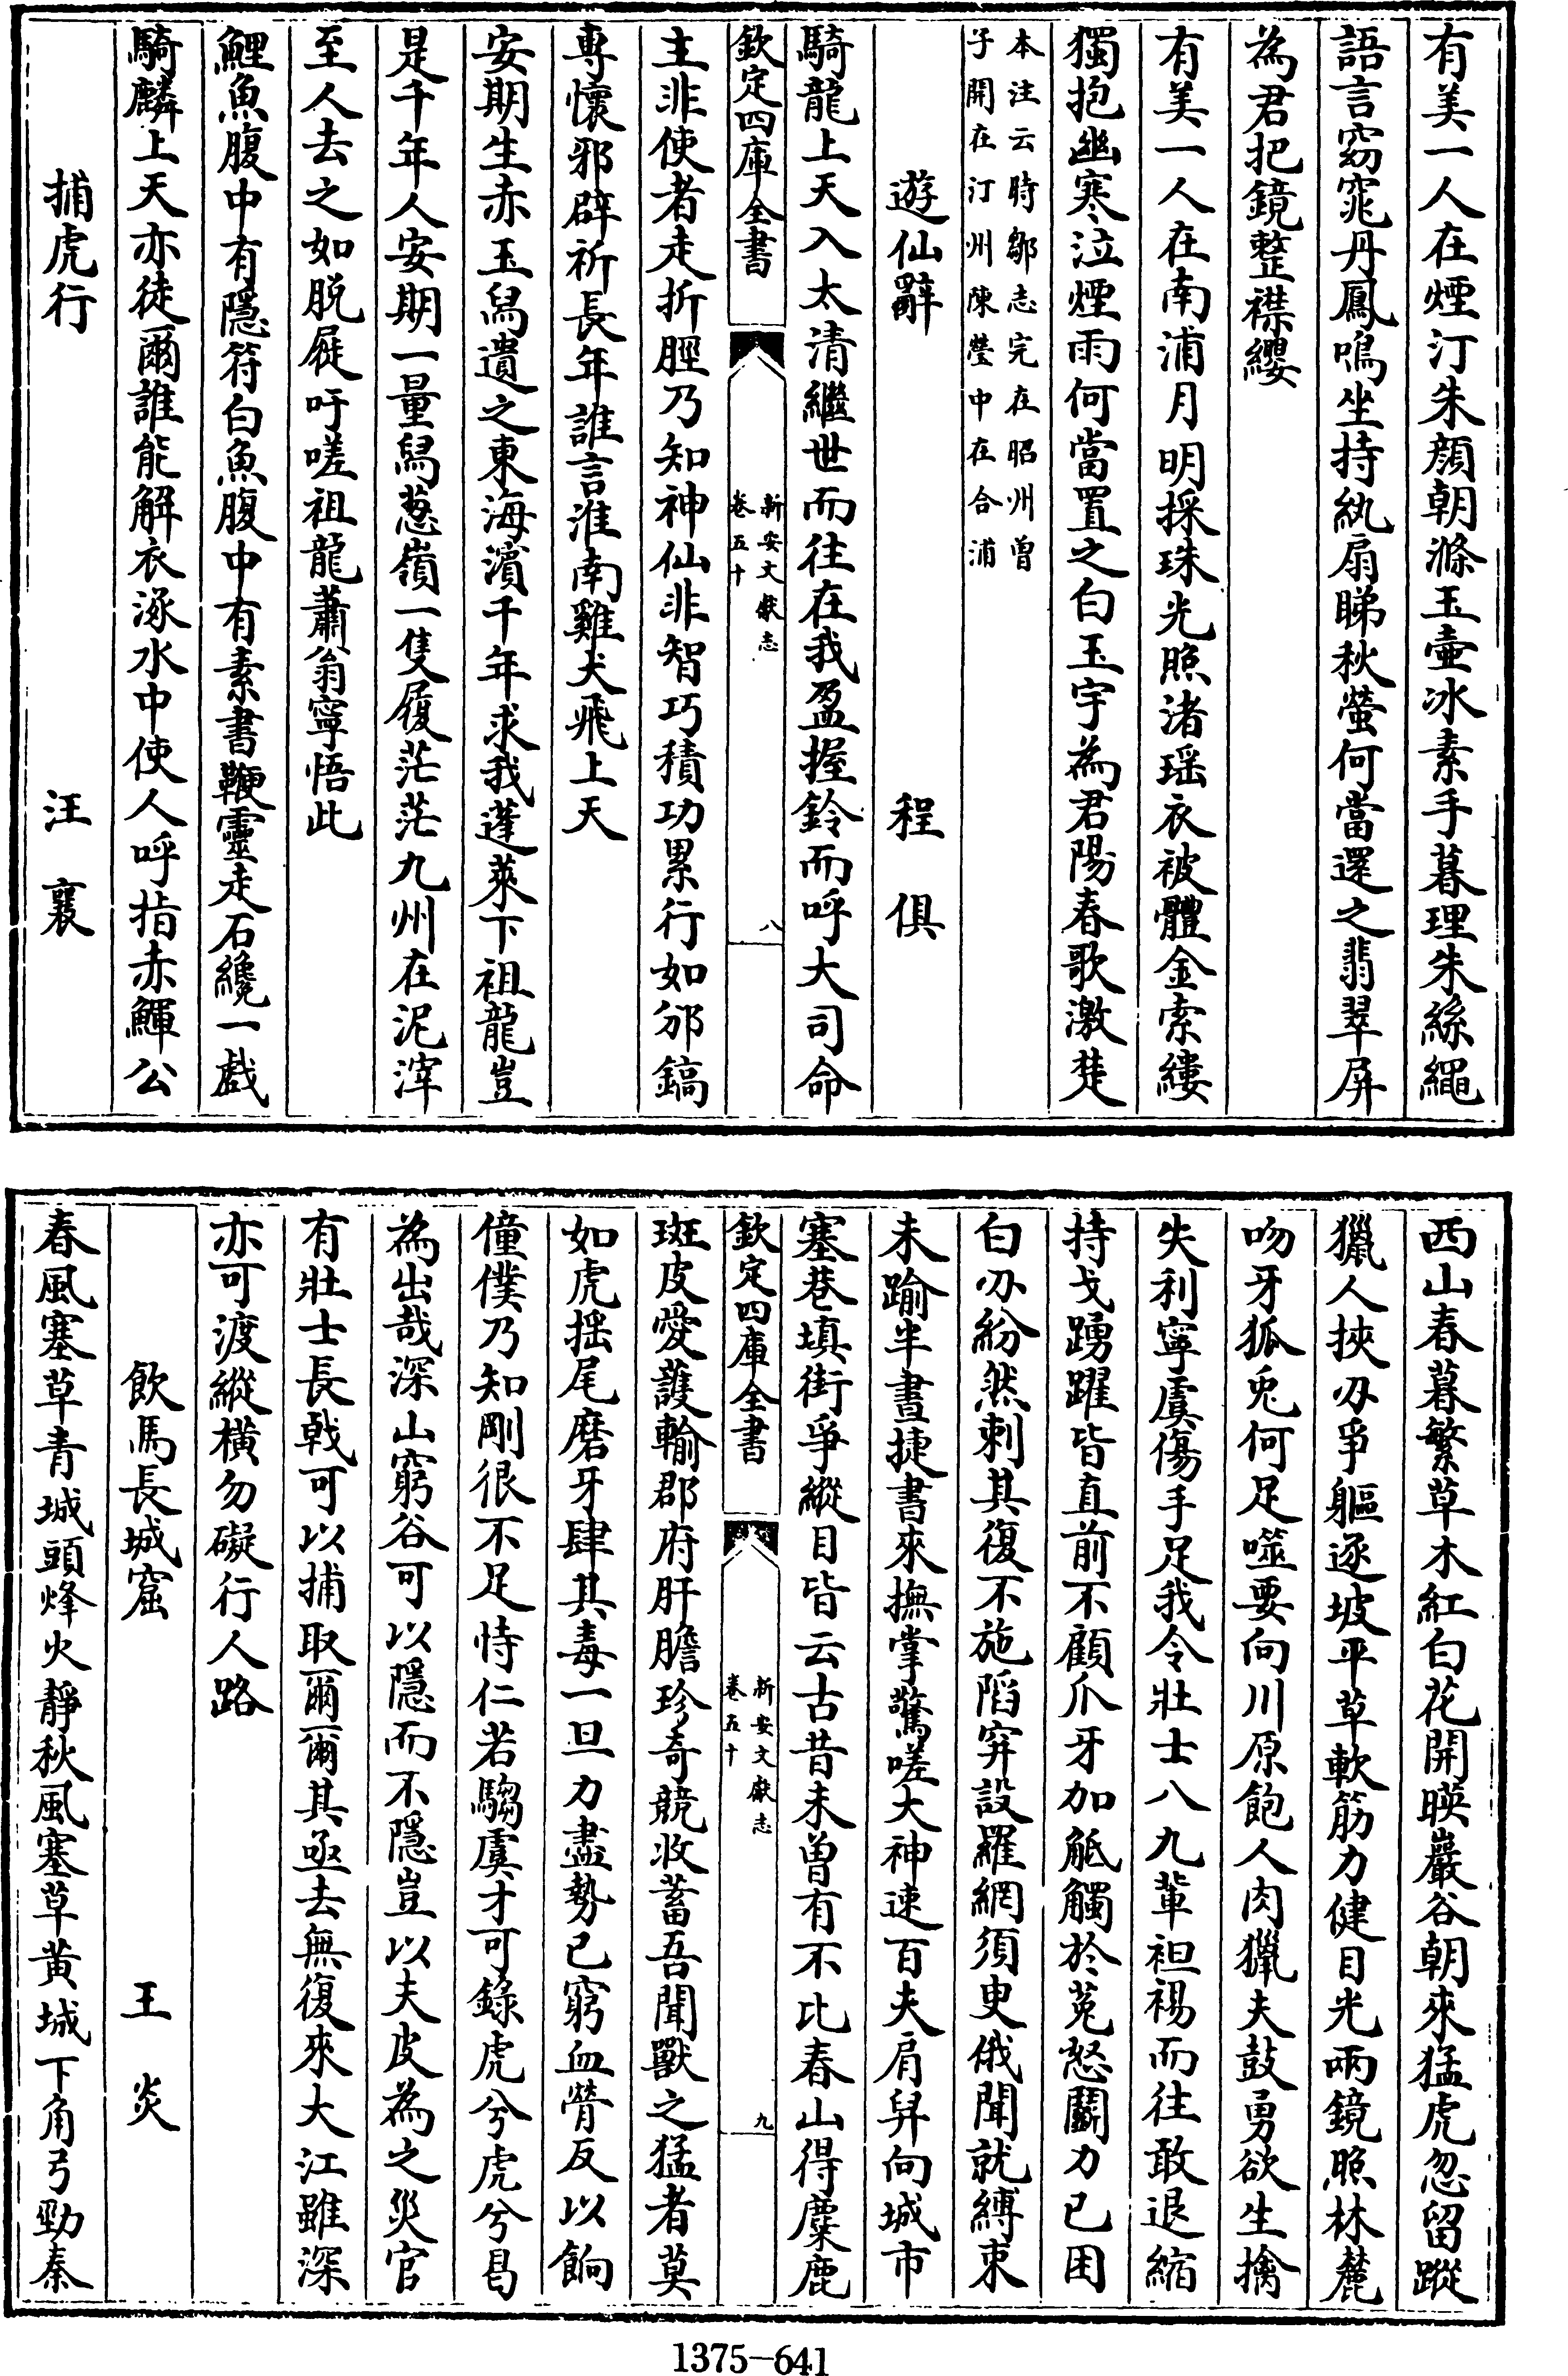 有美一人在煙汀朱顏朝滌玉壺冰素手暮理朱絲繩
語言窈窕丹鳳鳴坐持紈扇睇秋螢何當還之翡翠屏
為君把鏡整襟纓
有美一人在南浦月明採珠光照渚瑶衣被體金索縷
獨抱幽寒泣煙雨何當置之白玉宇為君陽春歌激楚
本注云時鄒志完在昭州曽
子開在汀州陳瑩中在合浦
遊仙辭　程俱
騎龍上天入太清繼世而往在我盈握鈴而呼大司命
欽定四庫全書　新安文獻志
卷五十　八
主非使者走折脛乃知神仙非智巧積功累行如邠鎬
專懷邪辟祈長年誰言淮南雞犬飛上天
安期生赤玉舄遺之東海濱千年求我蓬萊下祖龍豈
是千年人安期一量舄葱嶺一隻履茫茫九州在泥滓
至人去之如脱屣吁嗟祖龍蕭翁寧悟此
鯉魚腹中有隱符白魚腹中有素書鞭靈走石纔一戲
騎麟上天亦徒爾誰能解衣涿水中使人呼指赤鯶公
捕虎行　汪襄
西山春暮繁草木紅白花開暎巖谷朝來猛虎忽留蹤
獵人挾刅爭軀逐坡平草軟筋力健目光兩鏡照林麓
吻牙狐兎何足噬要向川原飽人肉獵夫鼓勇欲生擒
失利寧虞傷手足我令壯士八九軰袒裼而往敢退縮
持戈踴躍皆直前不顧爪牙加觝觸於菟怒鬭力已困
白刅紛然刺其復不施陷穽設羅網須臾俄聞就縛束
未踰半晝捷書來撫掌驚嗟大神速百夫肩舁向城市
塞巷填街爭縱目皆云古昔未曾有不比春山得麋鹿
欽定四庫全書　新安文獻志
卷五十　九
斑皮愛護輸郡府肝膽珍奇競收蓄吾聞獸之猛者莫
如虎揺尾磨牙肆其毒一旦力盡勢已窮血膋反以餉
僮僕乃知剛很不足恃仁若騶虞才可錄虎兮虎兮曷
為出哉深山窮谷可以隱而不隱豈以夫皮為之災官
有壯士長戟可以捕取爾爾其亟去無復來大江雖深
亦可渡縱横勿礙行人路
飲馬長城窟　王炎
春風塞草青城頭烽火靜秋風塞草黄城下角弓勁秦
1375-641